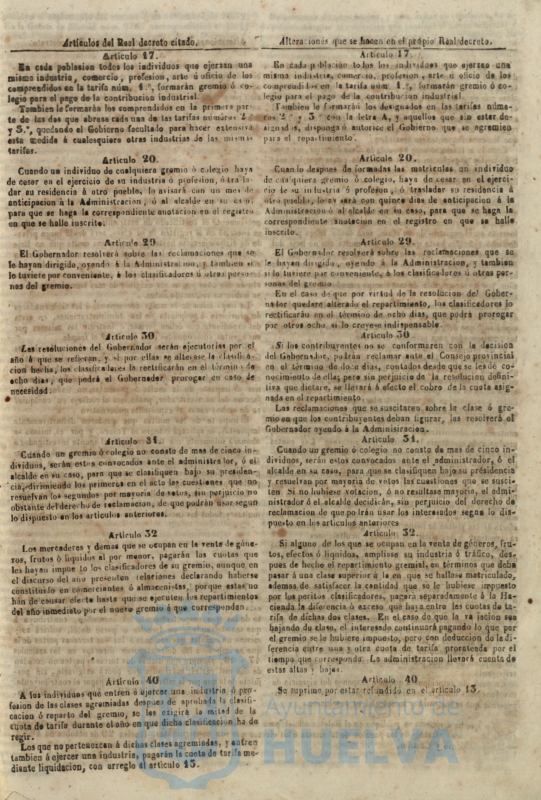 Artículos del Real decreto citado.
Artículo 17.
En cada poblasion todos los individuos que ejerzan una
misma industria, comercio, profesion, arte ú oficio de los
comprendidos en la tarifa núm. 1.º, formarán gremio ó co-
legio para el pago de la contribucion industrial.
Tambien le formarán los comprendidos en la primera par-
te de las dos que abraza cada una de las tarifas números 2
y 3.ª, quedando el Gobierno facultado para hacer extensiva
esta medida á cualesquiera otras industrias de las mismas
tarifas.
Artículo 20.
Cuando un individuo de cualquiera gremio ó colegio haya
de cesar en el ejercicio de su industria ó profesion, ó trala-
dar su residencia á otro pueblo, lo avisará con un mes de
anticipacion á la Administracion, ó al alcalde en su caso,
para que se haga la correspondiente anotacion en el registro
en que se halle inscrito.
Artículo 29
El Gobernador resolverá sobre las reclamaciones que se
le hayan dirigido, oyendo á la Administracion, y tambien si
lo tuviere por conveniente, á los clasificadores ú otras perso-
nas del gremio.
Artículo 30.
Las resoluciones del Gobernador serán ejecutorias por el
año á que se refieran, y si por ellas se alterase la clasifica-
cion hecha, los clasificadores la rectificarán en el término de
ocho dias, que podrá el Gobernador prorogar en caso de
necesidad.
Artículo 31.
Cuando un gremio ó colegio no conste de mas de cinco in-
dividuos, serán estos convocados ante el administrador, ó el
alcalde en su caso, para que se clasifiquen bajo su presiden-
cia, dirimiendo los primeros en el acto las cuestiones que no
resuelvan los segundos por mayoria de votos, sin perjuicio no
obstante del derecho de reclamacion, de que podrán usar segun
lo dispuesto en los artículos anteriores.
Artículo 32
Los mercaderes y demas que se ocupan en la venta de géne-
ros, frutos ó líquidos al por menor, pagarán las cuotas que
les hayan impuesto los clasificadores de su gremio, aunque en
el discurso del año presenten relaciones declarando haberse
constituido en comerciantes ó almacenistas, porque estas no
han de causar efecto hasta que se ejecuten los repartimientos
del año inmediato por el nuevo gremio á que correspondan.
Artículo 40
A los individuos que entren á ejercer una industria ó pro-
fesion de las clases agremiadas despues de aprobada la clasifi-
cacion ó reparto del gremio, se les exigirá la mitad de la
cuota de tarifa durante el año en que dicha clasificacion ha de
regir.
Los que no pertenezcan á dichas clases agremiadas, y entren
tambien á ejercer una industria, pagarán la cuota de tarifa me-
diante liquidacion, con arreglo al artículo 13.
Alteraciones que se hacen en el propio Real decreto.
Artículo 17.
En cada poblacion todos los individuos que ejerzan una
misma industria, comercio, profesion, arte ú oficio de los
comprendidos en la tarifa núm. 1.º, formarán gremio ó co-
legio para el pago de la contribucion industrial.
Tambien le formarán los designados en las tarifas núme-
ros 2.º y 3.º con la letra A, y aquellos que sin estar de-
signados, disponga ó autorice el Gobierno que se agremien
para el repartimiento.
Artículo 20.
Cuando despues de formadas las matrículas un individuo
de cualquiera gremio ó colegio, haya de cesar en el ejerci-
cio de su industria ó profesion, ó trasladar su residencia á
otro pueblo, lo avisará con quince dias de anticipacion á la
Administracion ó al alcalde en su caso, para que se haga la
correspondiente anotacion en el registro en que se halle
inscrito.
Artículo 29.
El Gobernador resolverá sobre las reclamaciones que se
le hayan dirigido, oyendo á la Administracion, y tambien
si lo tuviere por conveniente, á los clasificadores ú otras per-
sonas del gremio
En el caso de que por virtud de la resolucion del Gober-
nador quedare alterado el repartimiento, los clasificadores lo
rectificarán en el término de ocho dias, que podrá prorogar
por otros ocho si lo creyese indispensable.
Artículo 30
Si los contribuyentes no se conformaren con la decision
del Gobernador, podrán reclamar ante el Consejo provincial
en el término de doce dias, contados desde que se les dé co-
nocimiento de ella; pero sin perjuicio de la resolucion defini-
tiva que dictare, se llevará á efecto el cobro de la cuota asig-
nada en el repartimiento.
Las reclamaciones que se suscitaren sobre la clase ó gre-
mio en que los contribuyentes deban figurar, las resolverá el
Gobernador oyendo á la Administracion.
Artículo 31.
Cuando un gremio ó colegio no conste de mas de cinco in-
dividuos, serán estos convocados ante el administrador, ó el
alcalde en su caso, para que se clasifiquen bajo su presidencia
y resuelvan por mayoria de votos las cuestiones que se susci-
ten Si no hubiese votacion, ó no resultase mayoría, el admi-
nistrador ó el alcalde decidirán, sin perjuicio del derecho de
reclamacion de que podrán usar los interesados segun lo dis-
puesto en los artículos anteriores
Artículo 32.
Si alguno de los que se ocupan en la venta de géneros, fru-
tos, efectos ó líquidos, ampliase su industria ó tráfico, des-
pues de hecho el repartimiento gremial, en términos que deba
pasar á una clase superior á la en que se hallase matriculado,
ademas de satisfacer la cantidad que se le hubiese impuesto
por los peritos clasificadores, pagará separadamente á la Ha-
cienda la diferencia ó exceso que haya entre las cuotas de ta-
rifa de dichas dos clases. En el caso de que la variacion sea
bajando de clase, el interesado continuará pagando lo que por
el gremio se le hubiese impuesto, pero con deduccion de la di-
ferencia entre una y otra cuota de tarifa prorateada por el
tiempo que corresponda. La administracion llevará cuenta de
estas altas y bajas.
Artículo 40
Se suprime por estar refundido en el artículo 13.
Ayuntamiento de
HUELVA